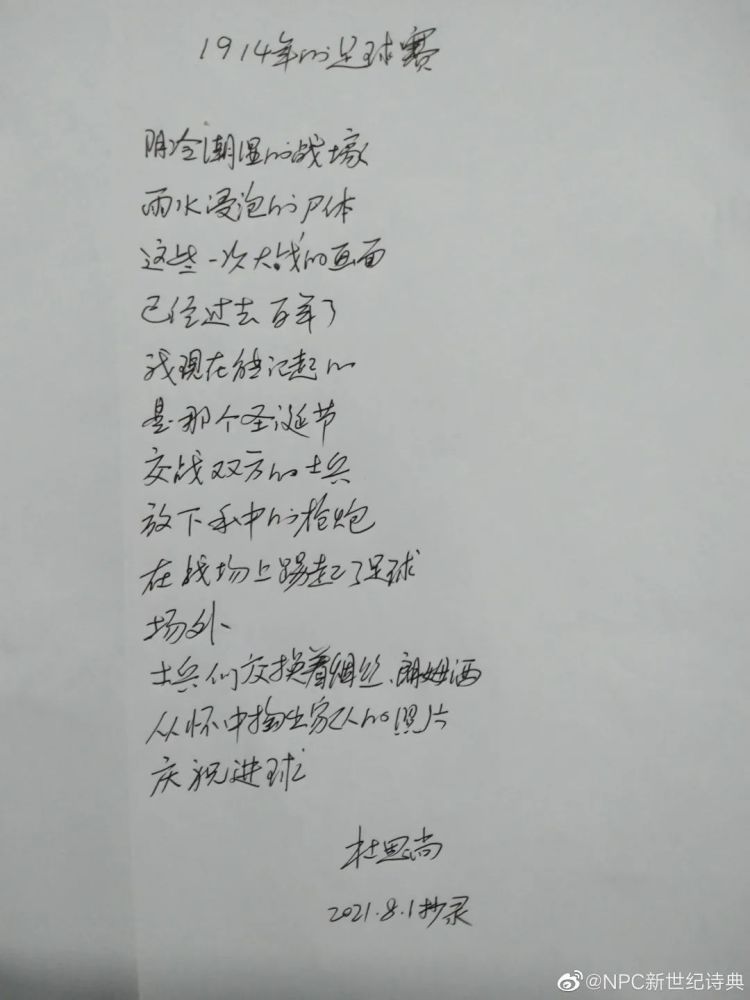 1914年的足球赛
阴冷潮湿的战壕
雨水浸泡的尸体
这些一次大战的画面
已经过去百年了
我现在能记起的
是那个圣诞节
交战双方的士兵
放下手中的枪炮
在战场上踢起了足球
场外
士兵们交换着绸丝、朗姆酒
从怀中掏出家人的照片
庆祝进球
杜思尚
2021.8.1抄录
@NPC新世纪诗典